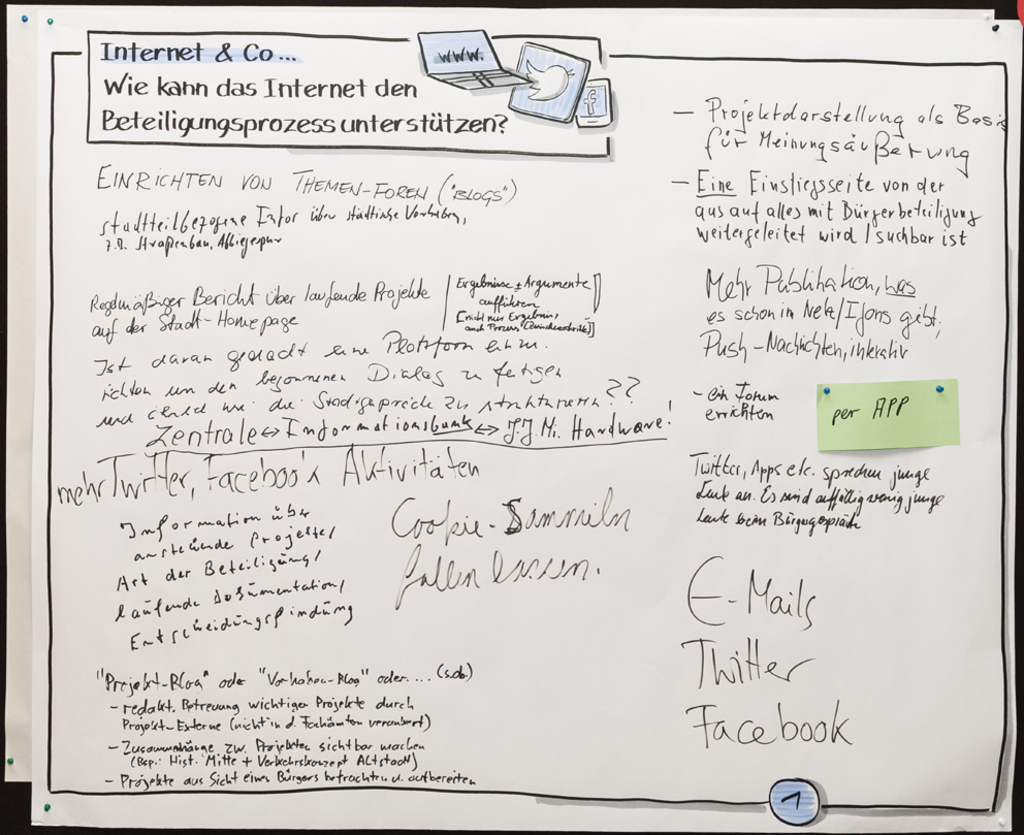 Internet & Co...
Wie kann das Internet den
Beteiligungsprozess unterstützen?
www.
f
EINRICHTEN VON THEMEN-FOREN ("BLOGS")
stadtteilbezogene Infos über städtische Vorhaben,
z.B. Straßenbau,
Regelmäßiger Bericht über laufende Projekte
auf der Stadt-Homepage
Ergebnisse + Argumente
aufführen
[nicht nur Ergebnis,
auch Prozess (Zwischenschritte)]
Ist daran gedacht eine Plattform einzu-
richten um den begonnenen Dialog zu festigen
und die Stadtgespräche zu strukturieren??
Zentrale ↔ Informationsbank ↔ Hardware!
mehr Twitter, Facebook Aktivitäten
Information über
anstehende Projekte/
Art der Beteiligung/
laufende Dokumentation/
Entscheidungsfindung
Cookie-Sammeln
fallen lassen.
"Projekt-Blog" oder "Vorhaben-Blog" oder.... (s.ob.)
- redakt. Betreuung wichtiger Projekte durch
Projekt-Externe (nicht in d. Fachämtern verankert)
- Zusammenhänge zw. Projekten sichtbar machen
(Bsp.: Hist. Mitte + Verkehrskonzept Altstadt)
- Projekte aus Sicht eines Bürgers betrachten u. aufbereiten
- Projektdarstellung als Basis
für Meinungsäußerung
- Eine Einstiegsseite von der
aus auf alles mit Bürgerbeteiligung
weitergeleitet wird / suchbar ist
Mehr Publikation, was
es schon im Netz/Ifons gibt;
Push-Nachrichten, interaktiv
- ein Forum
errichten
per APP
Twitter, Apps etc. sprechen junge
Leute an. Es sind auffällig wenig junge
Leute beim Bürgergespräch
E-Mails
Twitter
Facebook
1